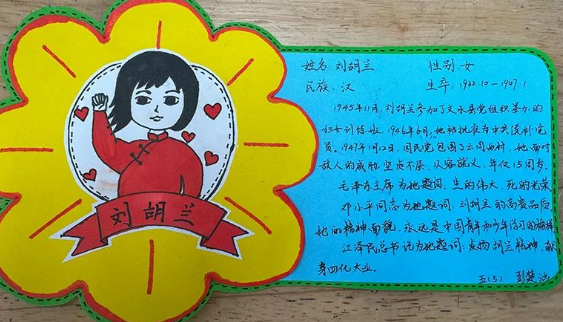 刘胡兰
姓名:刘胡兰 性别:女
民族:汉 生卒:1932.10—1947.1
1945年11月,刘胡兰参加了文水县党组织举办的
妇女训练班,1946年6月,她被批准为中共预补党
员,1947年1月12日,国民党包围了云周西村,她面对
敌人的威胁,坚贞不屈,从容就义,年仅15周岁。
毛泽东主席为她题词:生的伟大,死的光荣
邓小平同志为她题词:刘胡兰的高贵品质
她的精神面貌,永远是中国青年和少年学习的榜样
江泽民总书记为她题词:发扬胡兰精神,献
身四化大业。
五(5) 彭楚